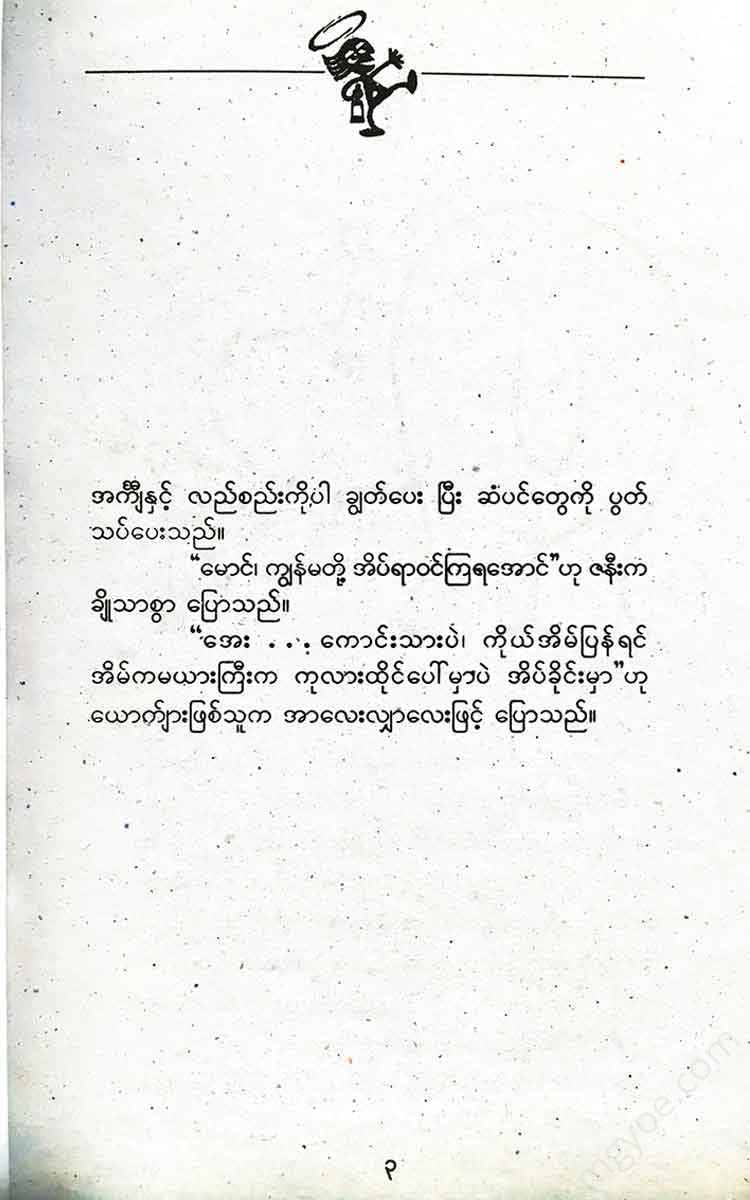 အင်္ကျီနှင့် လည်စည်းကိုပါ ချွတ်ပေး ပြီး ဆံပင်တွေကို ပွတ်
သပ်ပေးသည်။
“မောင်၊ ကျွန်မတို့ အိပ်ရာဝင်ကြရအောင်”ဟု ဇနီးက
ချိုသာစွာ ပြောသည်။
“အေး . . . ကောင်းသားပဲ၊ ကိုယ်အိမ်ပြန်ရင်
အိမ်ကမယားကြီးက ကုလားထိုင်ပေါ်မှာပဲ အိပ်ခိုင်းမှာ”ဟု
ယောက်ျားဖြစ်သူက အာလေးလျှာလေးဖြင့် ပြောသည်။
၃
mgyoe.com